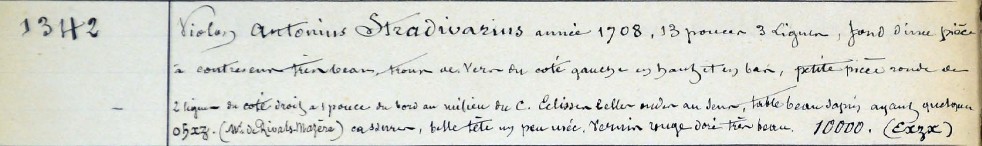 1342 Violon Antonius Stradivarius année 1708, 13 pouces 3 lignes, fond d'une pièce
à contresens très beau, trous de vers du coté gauche en haut et en bas, petite pièce ronde de
2 lignes du coté droit a 1 pouce du bord au milieu du C. Eclisses belles ondes au sens, table beau sapin ayant quelques
ohxz. (Mr. de Rivals-Mazère) cassures, belle tête un peu usée. Vernis rouge doré très beau. 10000. (Exzx)